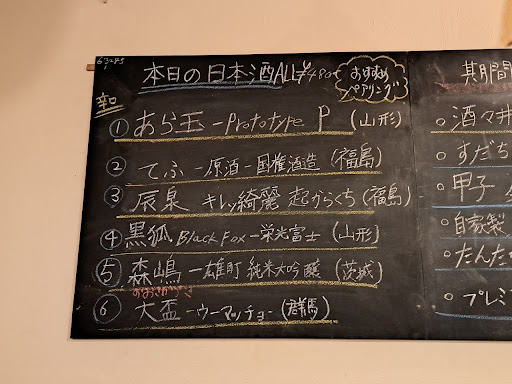 本日の日本酒ALL¥490
おすすめ
ペアリング
辛口
① あら玉-Prototype P (山形)
② てふ-原酒-国権酒造 (福島)
③ 辰泉 キレッ綺麗 超からくち (福島)
④ 黒狐 Black Fox-栄光冨士 (山形)
⑤ 森嶋-雄町 純米大吟醸 (茨城)
⑥ 大盃-ウーマッチョ- (群馬)
其月間
○酒々井
○すだち
○甲子
○自家製
○たんた
○プレミ